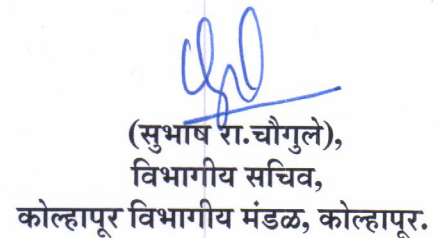 (सुभाष रा.चौगुले),
विभागीय सचिव,
कोल्हापूर विभागीय मंडळ, कोल्हापूर.